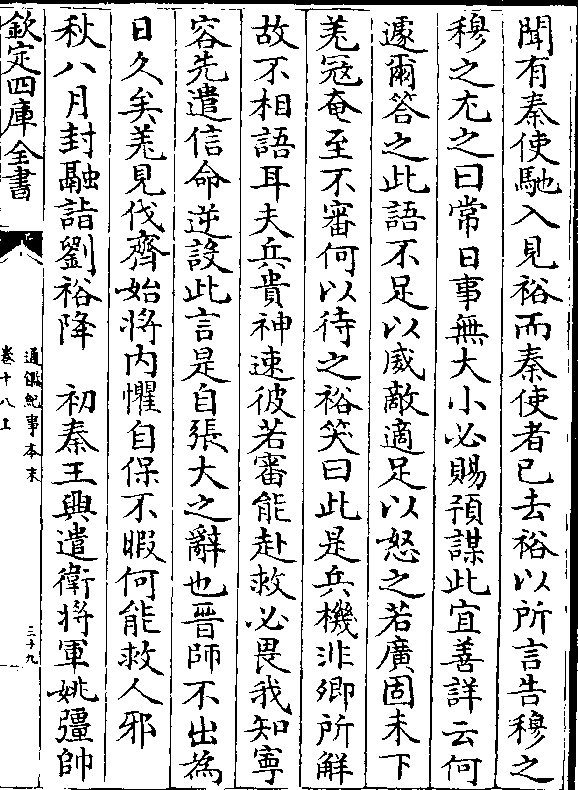 聞有秦使馳入見裕而秦使者已去裕以所言告穆之
穆之尤之曰常日事無大小必賜預謀此宜善詳云何
遽爾答之此語不足以威敵適足以怒之若廣固未下
羌冦奄至不審何以待之裕笑曰此是兵機非卿所解
故不相語耳夫兵貴神速彼若審能赴救必畏我知寧
容先遣信命逆設此言是自張大之辭也晉師不出為
日久矣羌見伐齊始將内懼自保不暇何能救人邪
秋八月封融詣劉裕降　初秦王興遣衛將軍姚彊帥
欽定四庫全書
通鑑紀事本末
卷十八上
三十九